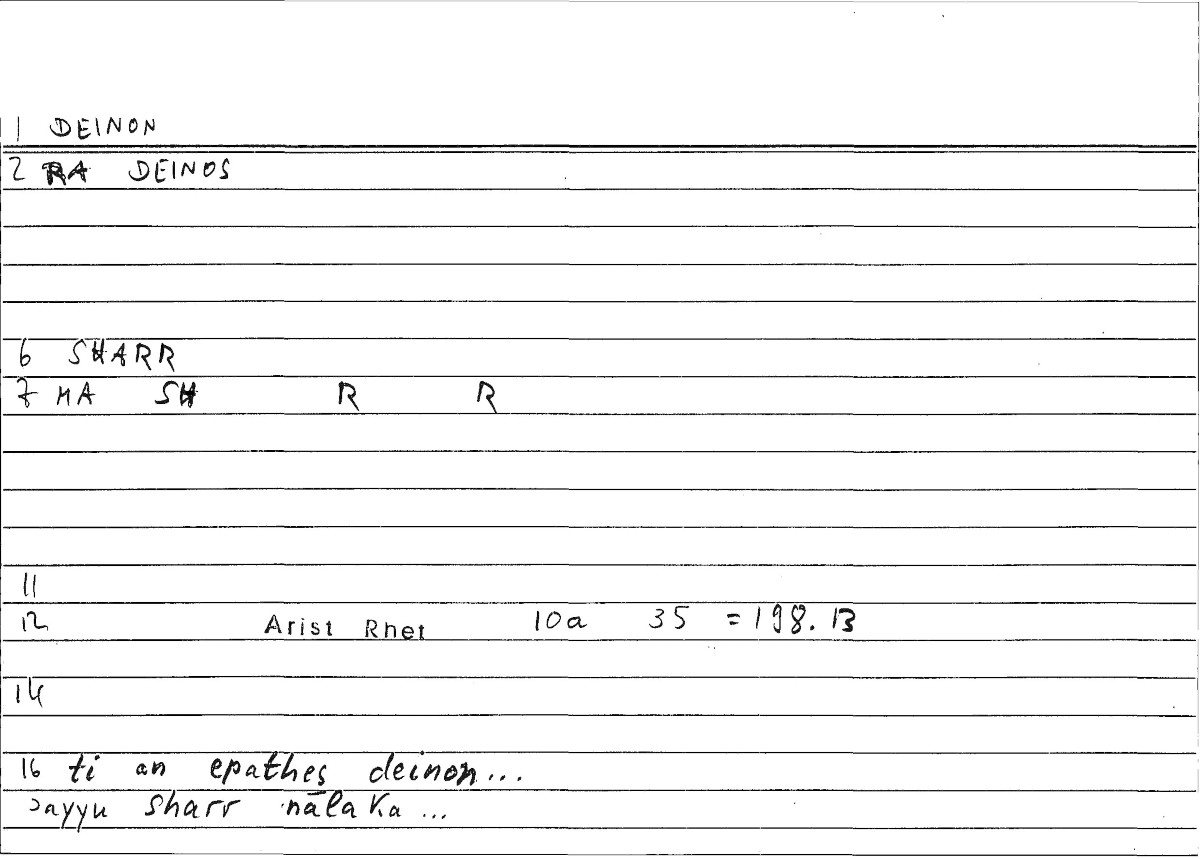 1 DEINON
2 RA DEINOS
6 SHARR
7 MA SH R R
11
12 Arist Rhet 10a 35 = 198.13
14
16 ti an epathes deinon...
ɔayyu sharr nālaka...